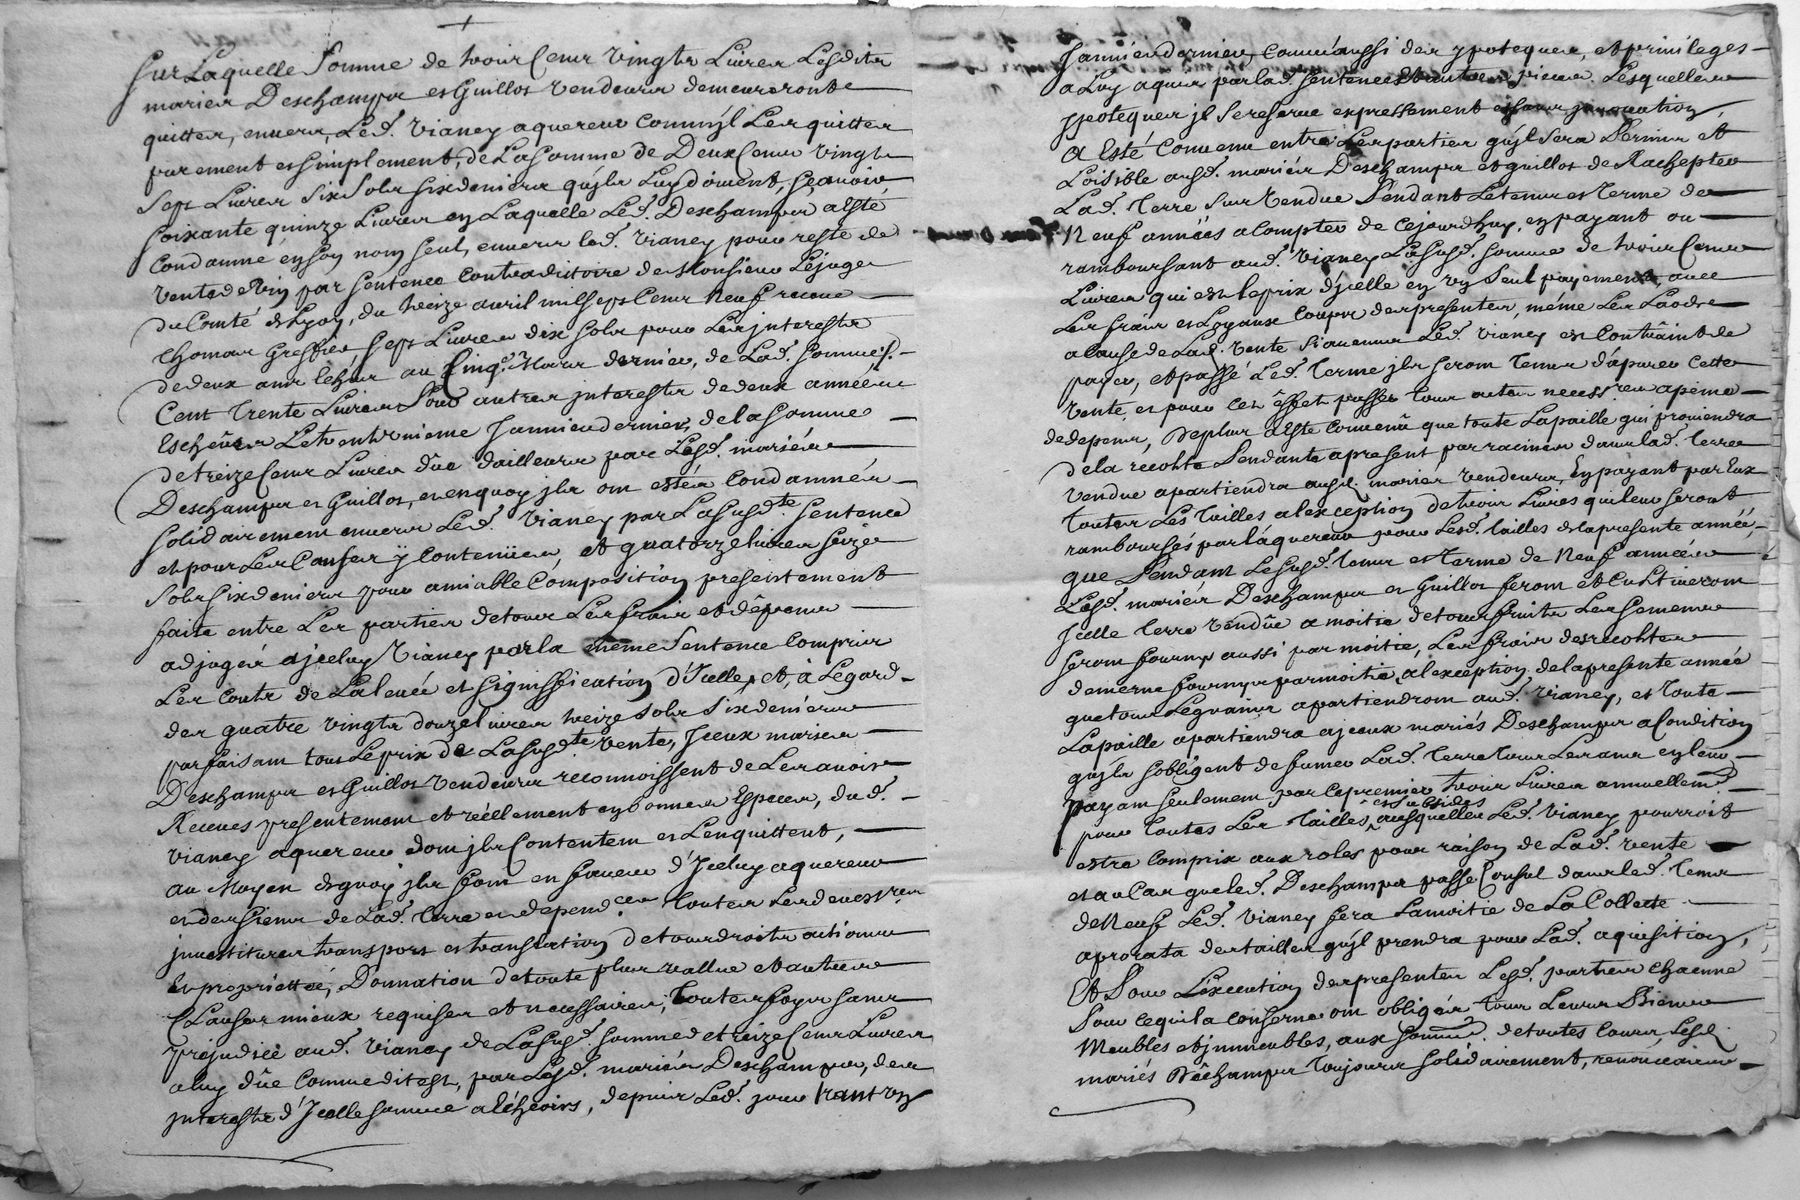 Sur Laquelle Somme de trois Cents vingts Livres Lesdits
mariés Deschamps et Guillot vendeurs demeureronts
quittes, envers, Led. Vianey aquereur comm'jl Les quitte
purement et simplement, de La Somme de Deux Cents vingts
Sept Livres Six Sols six deniers qu'jls Luy doivent, Sçavoir,
Soixante quinze Livres en Laquelle Led. Deschamps a esté
Condamné en son nom seul, envers led. Vianey pour reste de
vente de vin par Sentence contradictoire de Monsieur Lejuge
du Comté de Lyon, du treize avril mil sept Cents neuf receue
Thomas Greffier, Sept Livres dix sols pour Les jnterests
de deux ans echus au Cinq.e Mars dernier, de Lad. Somme,
Cent trente Livres Pour autres jnterests de deux années
Escheües Le trentunieme Janvier dernier, de la Somme
de treize Cents Livres düe dailleurs par Lesd. mariés
Deschamps et Guillot, et en quoy jls ont estés Condamnés
Solidairement envers Led. Vianey par La Susd.te Sentence
et pour Les Causes y contenües, et quatorze livres seize
Sols six deniers pour amiable Composition presentement
faite entre Les parties de tous Les frais et dépens
adjugés a jceluy Vianey par la même Sentence Compris
Les Couts de La levée et signiffication d'Jcelle, et, à Legard
des quatre vingts douze livres treize sols six deniers
parfaisant tous Le prix de La Susd.te vente, Jceux mariés
Deschamps et Guillot vendeurs reconnoissent de Les avoir
Receues presentement et réellement en bonnes Especes, dud.
Vianey aquereur dont jls se Contentent et L'en quittent,
au Moyen de quoy jls font en faveur d'Jceluy aquereur
et des siens de Lad. terre et depend.ces toutes Les devestres
jnvestitures transport et translation de tous droits actions
Et proprietté, Donnation de toute plus vallue et autres
Clauses mieux requises et necessaires, toutes foys sans
prejudice aud. Vianey de La Susd. Somme de treize Cents Livres
a luy düe comme dit est, par Lesd. mariés Deschamps, des
jnterests d'Jcelle Somme a échoirs, depuis Led. jour trant'un
Janvier dernier, comm'aussi des ypoteques, et privileges
a Luy aquis par lad. Sentence Et autres pieces, Lesquelles
ypoteques jl Se reserve expressement et sans jnnovation,
A Esté Convenu entre Les parties qu'jl Sera Permis et
Loisible ausd. mariés Deschamps et guillot de Rachepter
Lad. Terre Sus vendue Pendant Le temps et Terme de
Neuf années a Compter de Cejourd'huy, en payant ou
rambourssant aud. Vianey La Susd. Somme de trois Cents
Livres qui est le prix d'jcelle en un Seul payement, avec
Les frais et Loyaux Coupts des presentes, même Les Laods
a Cause de Lad. vente Si avenu Led. Vianey est Contraint de
payer, et passé Led. Terme jls seront tenus d'apurer Cette
vente et pour Cet éffet passer tous actes necess.res a peine
de depens, De plus a Esté Convenû que toute La paille qui proviendra
de la récolte Pendante a present par racines dans lad. Terre
vendue apartiendra ausd. mariés vendeurs, En payant par Eux
toutes Les tailles a l'exception de trois Livres qui leur seront
remboursés par L'aquereur pour Lesd. tailles de la presente année,
que Pendant Le Susd. temps et terme de Neuf années
Lesd. mariés Deschamps et Guillot feront et Cultiveront
Jcelle terre vendüe a moitié de tous fruits Les semences
seront fournys aussi par moitié, Les frais des recoltes
dememe fournys par moitié, a l'exception de la presente année
que tous Les grains apartiendront aud. Vianey, et toute
La paille apartiendra a jceux mariés Deschamps a Condition
qu'jls s'obligent de fumer Lad. Terre tous Les ans en leur
payant seulement par Ce premier trois Livres annuellem.t
pour toutes Les tailles et subsides ausquelles Led. Vianey pourroit
estre Compris aux roles pour raison de Lad. vente
et au Cas que led. Deschamps passe Consul dans led. Tems
de Neuf Led. Vianey fera La moitie de La Collecte
a prorata des tailles qu'jl prendra pour Lad. aquisition,
Et Pour L'execution des presentes Lesd. parties Chacune
Pour ce qui la Conserne ont obligés tous Leurs Biens
Meubles et jmmeubles, aux Soum.ns de toutes Cours, Lesd.
mariés Dêchamps toujours solidairement, renonceans